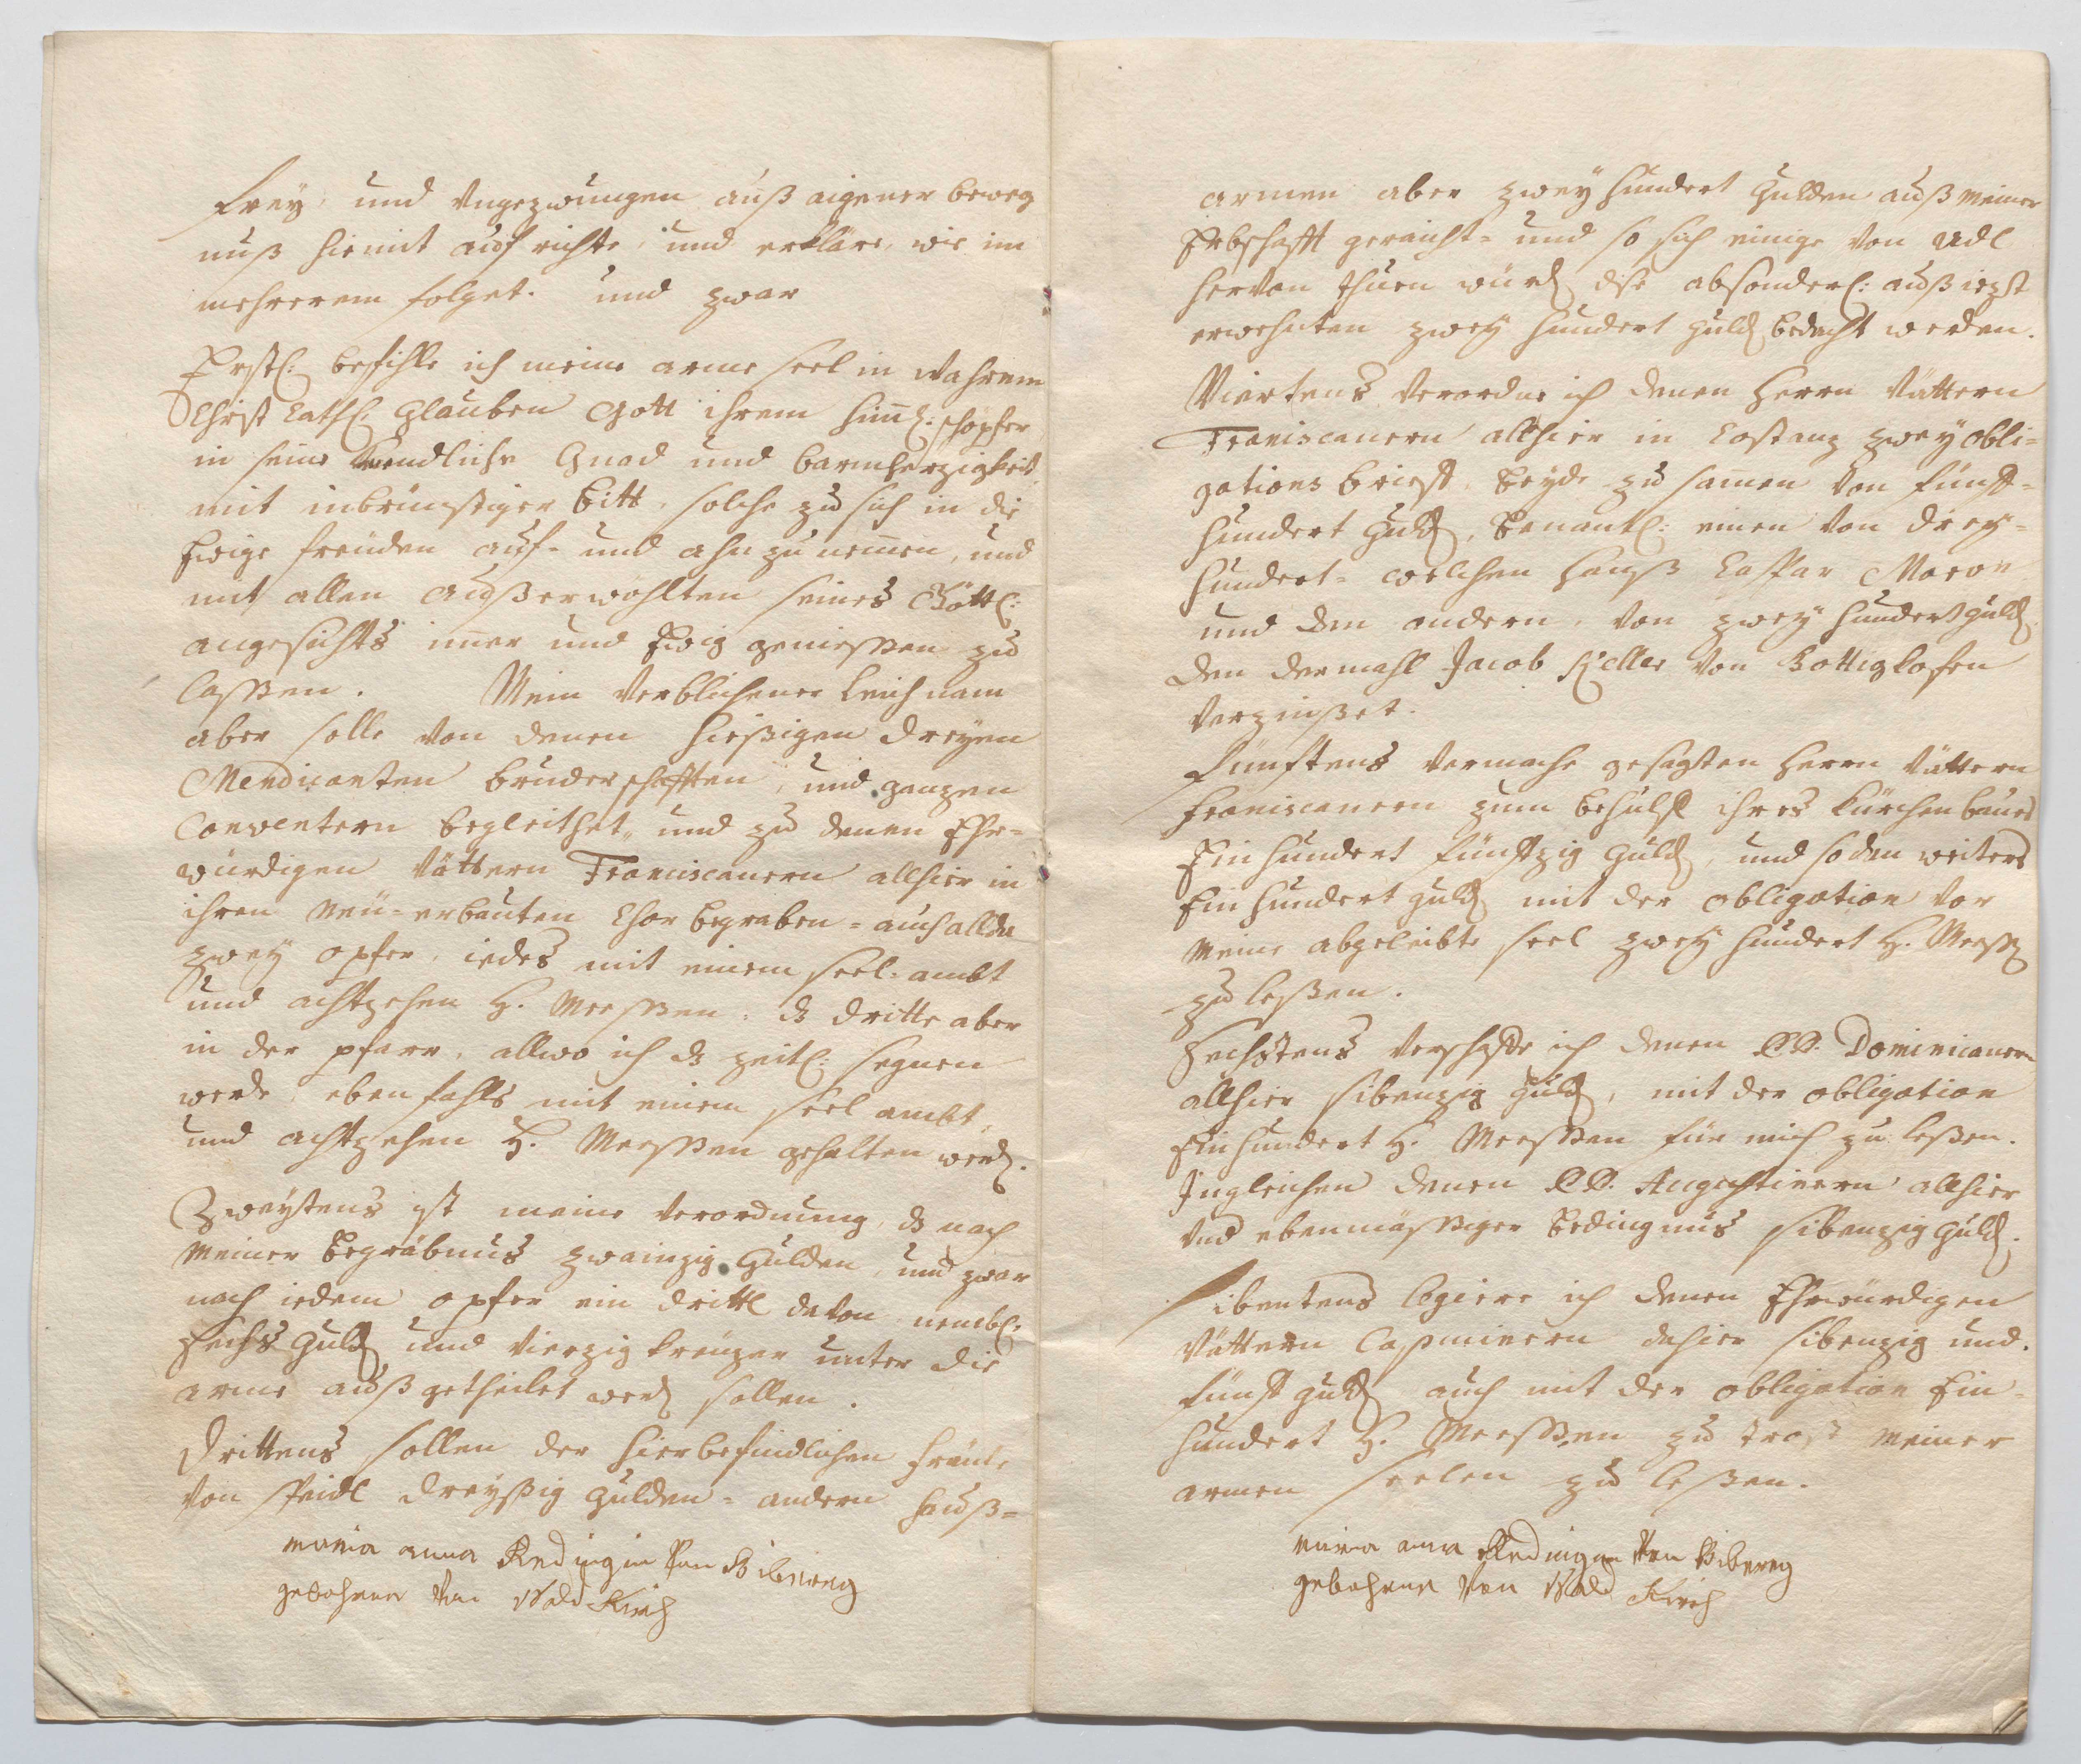 frey, und Ungezwungen auß aigener beweg
nuß hiemit aufrichte, und erkläre, wie im
mehrerem folget. und zwar
Erstl: befihle ich meine arme seel in wahrem
Christ Cathl: glauben Gott ihrem himl: schöpfer
in seine Unendliche Gnad und barmherzigkeit
mit inbrünstiger bitt, solche zu sich in die
Ewige freuden auf- und ahnzunemen, und
mit allen außerwöhlten seines Göttl:
angesichts imer und Ewig geniessen zu
lassen. Mein Verblichener Leichnam
aber solle von denen hießigen dreyen
Mendicanten bruderschafften, und ganzen
Conventern begleithet, und zu denen Ehr-
würdigen Vättern Franciscanern allhier in
ihren neü-erbauten Chor begraben- auch allda
zwey opfer, iedes mit einem seel-ambt
und achtzehen H. Meessen, ds dritte aber
in der pfarr, allwo ich ds zeitl: segnen
werde, ebenfahls mit einem seel ambt,
und achtzehen H. Meessen gehalten werd.
Zweytens ist meine Verordnung, ds nach
meiner begräbnus zwainzig Gulden, und zwar
nach iedem opfer ein drittl davon nembl:
sechs Guld und Vierzig kreuzer unter die
arme außgetheilet werd sollen.
Drittens sollen der hierbefindlichen fräule
von Speidl dreyßig Gulden- andern hauß-
maria anna Redingin Von Biberegg
gebohrne Von Wald Kirch
armen aber zwey hundert Gulden auß meiner
Erbschafft gereicht- und so sich einige von Adl
hervon thuen würd, dise absonderl: auß iezt
erwehnten zwey hundert Guld bedacht werden.
Viertens Verordne ich denen Herrn Vättern
Franciscanern allhier in Costanz zwey obli-
gations brieff, beyde zusamen von fünff-
hundert Guld, benantl: einen von drey-
hundert- welchen Hanß Caspar Moron
und den andern, von zwey hundert Guld,
den dermahl Jacob Keller von Bottigkofen
Verzinßet.
Fünfftens Vermache gesagten Herrn Vättern
Franciscanern zum behulff ihres kürchenbaues
Ein hundert fünffzig Guld, und soden weiters
Ein hundert Guld mit der obligation vor
meine abgeleibte seel zwey hundert H. Meess
zu leßen.
Sechstens Verschaffe ich denen PP. Dominicanern
allhier sibenzig Guld, mit der obligation
Ein hundert H. Meessen für mich zu leßen.
Ingleichen denen PP. Augustinern allhier
Und ebenmässiger bedingnus sibenzig Guld.
Sibentens legiere ich denen Ehrwürdigen
Vättern Capucinern dahier sibenzig und
fünff Guld auch mit der obligation Ein-
hundert H. Meessen zu trost meiner
armen seelen zu leßen.
maria anna Redingin Von Biberegg
gebohrne Von Wald Kirch